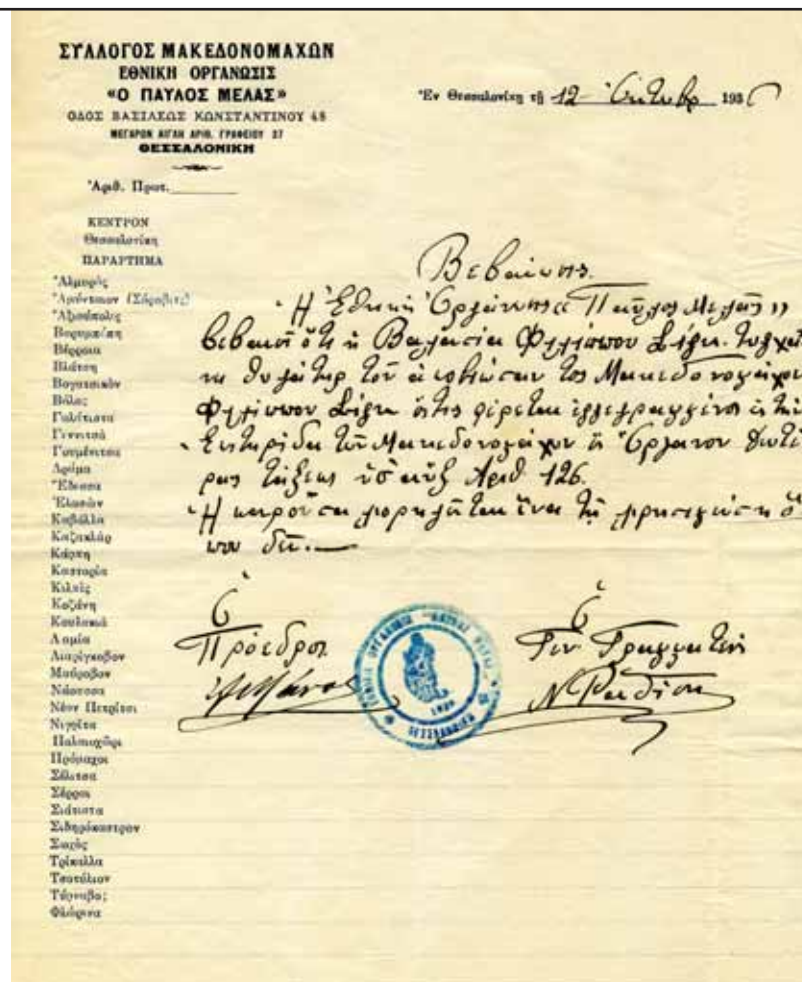 ΣΥΛΛΟΓΟΣ ΜΑΚΕΔΟΝΟΜΑΧΩΝ
ΕΘΝΙΚΗ ΟΡΓΑΝΩΣΙΣ
«Ο ΠΑΥΛΟΣ ΜΕΛΑΣ»
ΟΔΟΣ ΒΑΣΙΛΕΩΣ ΚΩΝΣΤΑΝΤΙΝΟΥ 48
ΜΕΓΑΡΟΝ ΑΙΓΛΗ ΑΡΙΘ. ΓΡΑΦΕΙΟΥ 37
ΘΕΣΣΑΛΟΝΙΚΗ
Ἐν Θεσσαλονίκῃ τῇ 12 Ὀκτωβρ 1936
Ἀριθ. Πρωτ.
ΚΕΝΤΡΟΝ
Θεσσαλονίκη
ΠΑΡΑΡΤΗΜΑ
Ἁλμυρὸς
Ἀμύνταιον (Σόροβιτς)
Ἀξιούπολις
Βέρροια
Βλάτση
Βογατσικὸν
Βόλος
Γαλάτιστα
Γιαννιτσὰ
Γουμένιτσα
Δράμα
Ἔδεσσα
Ἐλασσὼν
Καβάλλα
Καστορία
Κιλκὶς
Κοζάνη
Κουλακιὰ
Λαμία
Λιαρίγκοβον
Μαύροβον
Νάουσσα
Νέον Πετρίτσι
Νιγρίτα
Παλαιοχῶρι
Πρόμαχοι
Σέρραι
Σιάτιστα
Σιδηρόκαστρον
Τρίκαλλα
Τσοτύλιον
Τύρναβος
Φλώρινα
Βεβαίωσις.
Ἡ Ἐθνικὴ Ὀργάνωσις « Παῦλος Μελᾶς »
βεβαιοῖ ὅτι ἡ Βαλασία Φιλίππου Λίγδα τυγχά
νη θυγάτηρ τοῦ ἀποβιώσαντος Μακεδονομάχου
Φιλίππου Λίγδα ὅστις φέρεται ἐγγεγραμμένος εἰς τὴν
Ἐπετηρίδα τῶν Μακεδονομάχων ὡς Ὄργανον Δευτέ
ρας τάξεως ὑπ' αὔξ Ἀριθ 126.
Ἡ παροῦσα χορηγῆται ἵνα τῇ χρησιμεύσῃ ὅ
που δεῖ.
Ὁ
Πρόεδρος
Ὁ
Γεν. Γραμματεὺς
ΕΘΝΙΚΗ ΟΡΓΑΝΩΣΙΣ "ΠΑΥΛΟΣ ΜΕΛΑΣ"
ΘΕΣΣΑΛΟΝΙΚΗ